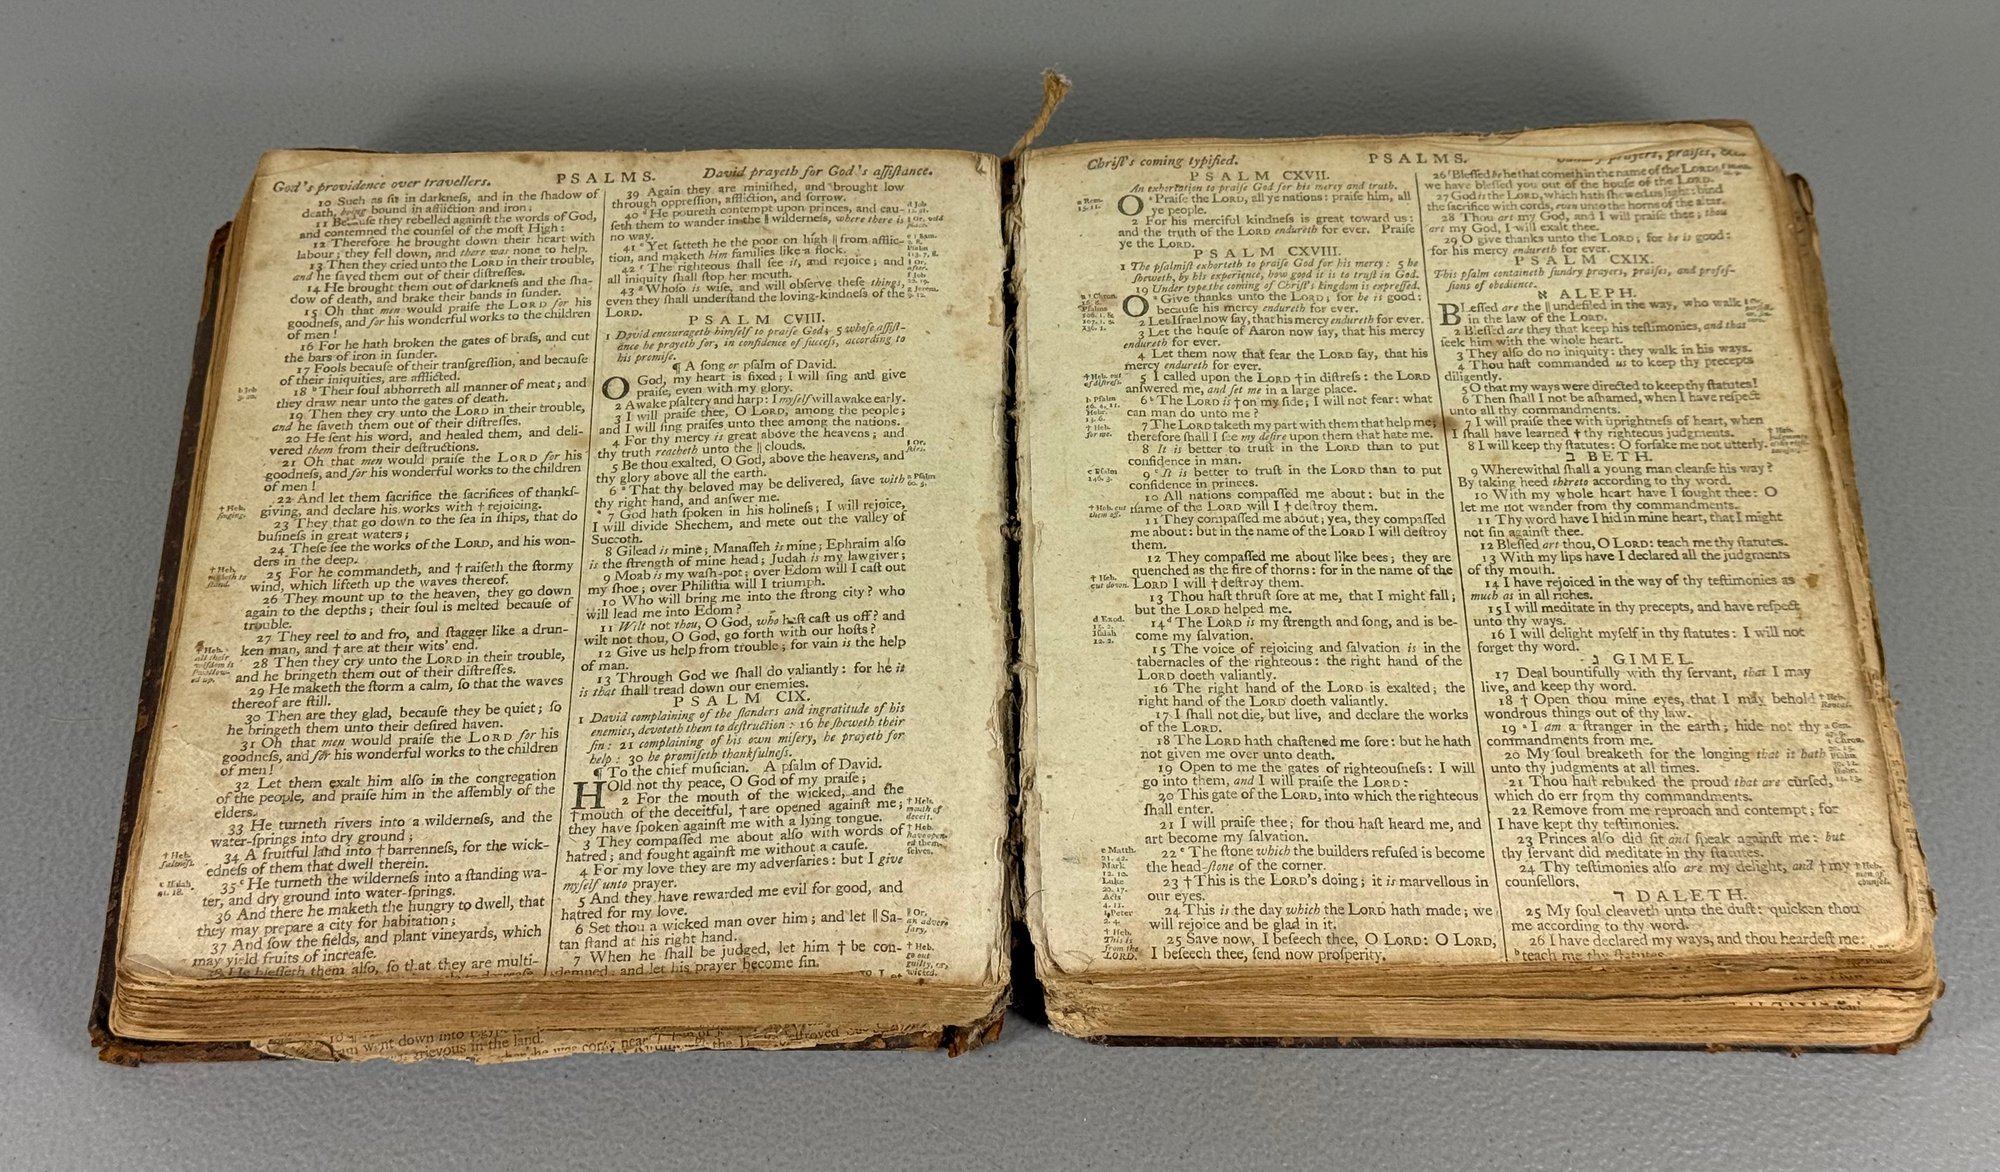 God's providence over travellers.
PSALMS.
David prayeth for God's aſſiſtance.
10 Such as ſit in darkneſs, and in the ſhadow of
death, being bound in affliction and iron;
11 Becauſe they rebelled againſt the words of God,
and contemned the counſel of the moſt High:
12 Therefore he brought down their heart with
labour; they fell down, and there was none to help.
13 Then they cried unto the LORD in their trouble,
and he ſaved them out of their diſtreſſes.
14 He brought them out of darkneſs and the ſha-
dow of death, and brake their bands in ſunder.
15 Oh that men would praiſe the LORD for his
goodneſs, and for his wonderful works to the children
of men!
16 For he hath broken the gates of braſs, and cut
the bars of iron in ſunder.
17 Fools becauſe of their tranſgreſſion, and becauſe
of their iniquities, are afflicted.
18 ᵇ Their ſoul abhorreth all manner of meat; and
they draw near unto the gates of death.
19 Then they cry unto the LORD in their trouble,
and he ſaveth them out of their diſtreſſes.
20 He ſent his word, and healed them, and deli-
vered them from their deſtructions.
21 Oh that men would praiſe the LORD for his
goodneſs, and for his wonderful works to the children
of men!
22 And let them ſacrifice the ſacrifices of thankſ-
giving, and declare his works with † rejoicing.
23 They that go down to the ſea in ſhips, that do
buſineſs in great waters;
24 Theſe ſee the works of the LORD, and his won-
ders in the deep.
25 For he commandeth, and † raiſeth the ſtormy
wind, which lifteth up the waves thereof.
26 They mount up to the heaven, they go down
again to the depths; their ſoul is melted becauſe of
trouble.
27 They reel to and fro, and ſtagger like a drun-
ken man, and † are at their wits' end.
28 Then they cry unto the LORD in their trouble,
and he bringeth them out of their diſtreſſes.
29 He maketh the ſtorm a calm, ſo that the waves
thereof are ſtill.
30 Then are they glad, becauſe they be quiet; ſo
he bringeth them unto their deſired haven.
31 Oh that men would praiſe the LORD for his
goodneſs, and for his wonderful works to the children
of men!
32 Let them exalt him alſo in the congregation
of the people, and praiſe him in the aſſembly of the
elders.
33 He turneth rivers into a wilderneſs, and the
water-ſprings into dry ground;
34 A fruitful land into † barrenneſs, for the wick-
edneſs of them that dwell therein.
35 ᶜ He turneth the wilderneſs into a ſtanding wa-
ter, and dry ground into water-ſprings.
36 And there he maketh the hungry to dwell, that
they may prepare a city for habitation;
37 And ſow the fields, and plant vineyards, which
may yield fruits of increaſe.
38 He bleſſeth them alſo, ſo that they are multi-
b Job
† Heb.
ſinging.
† Heb.
† Heb.
all their
wiſdom is
† Heb.
ſaltneſs.
c Iſaiah
41. 18.
39 Again they are miniſhed, and brought low
through oppreſſion, affliction, and ſorrow.
40 ᵈ He poureth contempt upon princes, and cau-
ſeth them to wander in the ‖ wilderneſs, where there is
no way.
41 ᵉ Yet ſetteth he the poor on high ‖ from afflic-
tion, and maketh him families like a flock.
42 ᶠ The righteous ſhall ſee it, and rejoice; and
all iniquity ſhall ſtop her mouth.
43 ᵍ Whoſo is wiſe, and will obſerve theſe things,
even they ſhall underſtand the loving-kindneſs of the
LORD.
PSALM CVIII.
1 David encourageth himſelf to praiſe God; 5 whoſe aſſiſt-
ance he prayeth for, in confidence of ſucceſs, according to
his promiſe.
¶ A ſong or pſalm of David.
O God, my heart is fixed; I will ſing and give
praiſe, even with my glory.
2 Awake pſaltery and harp: I myſelf will awake early.
3 I will praiſe thee, O LORD, among the people;
and I will ſing praiſes unto thee among the nations.
4 For thy mercy is great above the heavens; and
thy truth reacheth unto the ‖ clouds.
5 Be thou exalted, O God, above the heavens, and
thy glory above all the earth.
6 ᵃ That thy beloved may be delivered, ſave with
thy right hand, and anſwer me.
7 God hath ſpoken in his holineſs; I will rejoice,
I will divide Shechem, and mete out the valley of
Succoth.
8 Gilead is mine; Manaſſeh is mine; Ephraim alſo
is the ſtrength of mine head; Judah is my lawgiver;
9 Moab is my waſh-pot; over Edom will I caſt out
my ſhoe; over Philiſtia will I triumph.
10 Who will bring me into the ſtrong city? who
will lead me into Edom?
11 Wilt not thou, O God, who haſt caſt us off? and
wilt not thou, O God, go forth with our hoſts?
12 Give us help from trouble; for vain is the help
of man.
13 Through God we ſhall do valiantly: for he it
is that ſhall tread down our enemies.
PSALM CIX.
1 David complaining of the ſlanders and ingratitude of his
enemies, devoteth them to deſtruction: 16 he ſheweth their
ſin: 21 complaining of his own miſery, he prayeth for
help: 30 he promiſeth thankfulneſs.
¶ To the chief muſician. A pſalm of David.
HOld not thy peace, O God of my praiſe;
2 For the mouth of the wicked, and the
† mouth of the deceitful, † are opened againſt me;
they have ſpoken againſt me with a lying tongue.
3 They compaſſed me about alſo with words of
hatred; and fought againſt me without a cauſe.
4 For my love they are my adverſaries: but I give
myſelf unto prayer.
5 And they have rewarded me evil for good, and
hatred for my love.
6 Set thou a wicked man over him; and let ‖ Sa-
tan ſtand at his right hand.
7 When he ſhall be judged, let him † be con-
demned: and let his prayer become ſin.
d Job
‖ Or, void
place.
e 1 Sam.
2. 8.
Pſalm
113. 7, 8.
‖ Or,
after.
f Job
22. 19.
g Jerem.
9. 12.
‖ Or,
ſkies.
a Pſalm
60. 5.
† Heb.
mouth of
deceit.
† Heb.
have open-
ed them-
ſelves.
‖ Or,
an adver-
ſary.
† Heb.
go out
guilty, or,
wicked.
down into
am went down into
grievous in the land.
Chriſt's coming typified.
PSALMS.
Sundry prayers, praiſes, &c.
PSALM CXVII.
An exhortation to praiſe God for his mercy and truth.
O ᵃ Praiſe the LORD, all ye nations: praiſe him, all
ye people.
2 For his merciful kindneſs is great toward us:
and the truth of the LORD endureth for ever. Praiſe
ye the LORD.
PSALM CXVIII.
1 The pſalmiſt exhorteth to praiſe God for his mercy: 5 he
ſheweth, by his experience, how good it is to truſt in God.
19 Under type the coming of Chriſt's kingdom is expreſſed.
O ᵃ Give thanks unto the LORD; for he is good:
becauſe his mercy endureth for ever.
2 Let Iſrael now ſay, that his mercy endureth for ever.
3 Let the houſe of Aaron now ſay, that his mercy
endureth for ever.
4 Let them now that fear the LORD ſay, that his
mercy endureth for ever.
5 I called upon the LORD † in diſtreſs: the LORD
anſwered me, and ſet me in a large place.
6 ᵇ The LORD is † on my ſide; I will not fear: what
can man do unto me?
7 The LORD taketh my part with them that help me;
therefore ſhall I ſee my deſire upon them that hate me.
8 It is better to truſt in the LORD than to put
confidence in man.
9 ᶜ It is better to truſt in the LORD than to put
confidence in princes.
10 All nations compaſſed me about: but in the
name of the LORD will I † deſtroy them.
11 They compaſſed me about; yea, they compaſſed
me about: but in the name of the LORD I will deſtroy
them.
12 They compaſſed me about like bees; they are
quenched as the fire of thorns: for in the name of the
LORD I will † deſtroy them.
13 Thou haſt thruſt ſore at me, that I might fall;
but the LORD helped me.
14 ᵈ The LORD is my ſtrength and ſong, and is be-
come my ſalvation.
15 The voice of rejoicing and ſalvation is in the
tabernacles of the righteous: the right hand of the
LORD doeth valiantly.
16 The right hand of the LORD is exalted; the
right hand of the LORD doeth valiantly.
17 I ſhall not die, but live, and declare the works
of the LORD.
18 The LORD hath chaſtened me ſore: but he hath
not given me over unto death.
19 Open to me the gates of righteouſneſs: I will
go into them, and I will praiſe the LORD:
20 This gate of the LORD, into which the righteous
ſhall enter.
21 I will praiſe thee; for thou haſt heard me, and
art become my ſalvation.
22 ᵉ The ſtone which the builders refuſed is become
the head-ſtone of the corner.
23 † This is the LORD's doing; it is marvellous in
our eyes.
24 This is the day which the LORD hath made; we
will rejoice and be glad in it.
25 Save now, I beſeech thee, O LORD: O LORD,
I beſeech thee, ſend now proſperity.
a Rom.
15. 11.
a 1 Chron.
16. 8.
Pſalms
106. 1. &
107. 1. &
136. 1.
† Heb. out
of diſtreſs.
b Pſalm
56. 4, 11.
Hebr.
13. 6.
† Heb.
for me.
c Pſalm
146. 3.
† Heb. cut
them off.
† Heb.
cut down.
d Exod.
15. 2.
Iſaiah
12. 2.
e Matth.
21. 42.
Mark
12. 10.
Luke
20. 17.
Acts
4. 11.
1 Peter
2. 4.
† Heb.
This is
from the
LORD.
26 ᶠ Bleſſed be he that cometh in the name of the LORD:
we have bleſſed you out of the houſe of the LORD.
27 God is the LORD, which hath ſhewed us light: bind
the ſacrifice with cords, even unto the horns of the altar.
28 Thou art my God, and I will praiſe thee; thou
art my God, I will exalt thee.
29 O give thanks unto the LORD; for he is good:
for his mercy endureth for ever.
PSALM CXIX.
This pſalm containeth ſundry prayers, praiſes, and profeſ-
ſions of obedience.
א ALEPH.
BLeſſed are the ‖ undefiled in the way, who walk
in the law of the LORD.
2 Bleſſed are they that keep his teſtimonies, and that
ſeek him with the whole heart.
3 They alſo do no iniquity: they walk in his ways.
4 Thou haſt commanded us to keep thy precepts
diligently.
5 O that my ways were directed to keep thy ſtatutes!
6 Then ſhall I not be aſhamed, when I have reſpect
unto all thy commandments.
7 I will praiſe thee with uprightneſs of heart, when
I ſhall have learned † thy righteous judgments.
8 I will keep thy ſtatutes: O forſake me not utterly.
ב BETH.
9 Wherewithal ſhall a young man cleanſe his way?
By taking heed thereto according to thy word.
10 With my whole heart have I ſought thee: O
let me not wander from thy commandments.
11 Thy word have I hid in mine heart, that I might
not ſin againſt thee.
12 Bleſſed art thou, O LORD: teach me thy ſtatutes.
13 With my lips have I declared all the judgments
of thy mouth.
14 I have rejoiced in the way of thy teſtimonies as
much as in all riches.
15 I will meditate in thy precepts, and have reſpect
unto thy ways.
16 I will delight myſelf in thy ſtatutes: I will not
forget thy word.
ג GIMEL.
17 Deal bountifully with thy ſervant, that I may
live, and keep thy word.
18 † Open thou mine eyes, that I may behold
wondrous things out of thy law.
19 ᵃ I am a ſtranger in the earth; hide not thy
commandments from me.
20 My ſoul breaketh for the longing that it hath
unto thy judgments at all times.
21 Thou haſt rebuked the proud that are curſed,
which do err from thy commandments.
22 Remove from me reproach and contempt; for
I have kept thy teſtimonies.
23 Princes alſo did ſit and ſpeak againſt me: but
thy ſervant did meditate in thy ſtatutes.
24 Thy teſtimonies alſo are my delight, and † my
counſellors,
ד DALETH.
25 My ſoul cleaveth unto the duſt: quicken thou
me according to thy word.
26 I have declared my ways, and thou heardeſt me:
teach me thy ſtatutes.
† Heb.
† Heb.
Reveal.
a Gen.
† Heb.
men of
counſel.